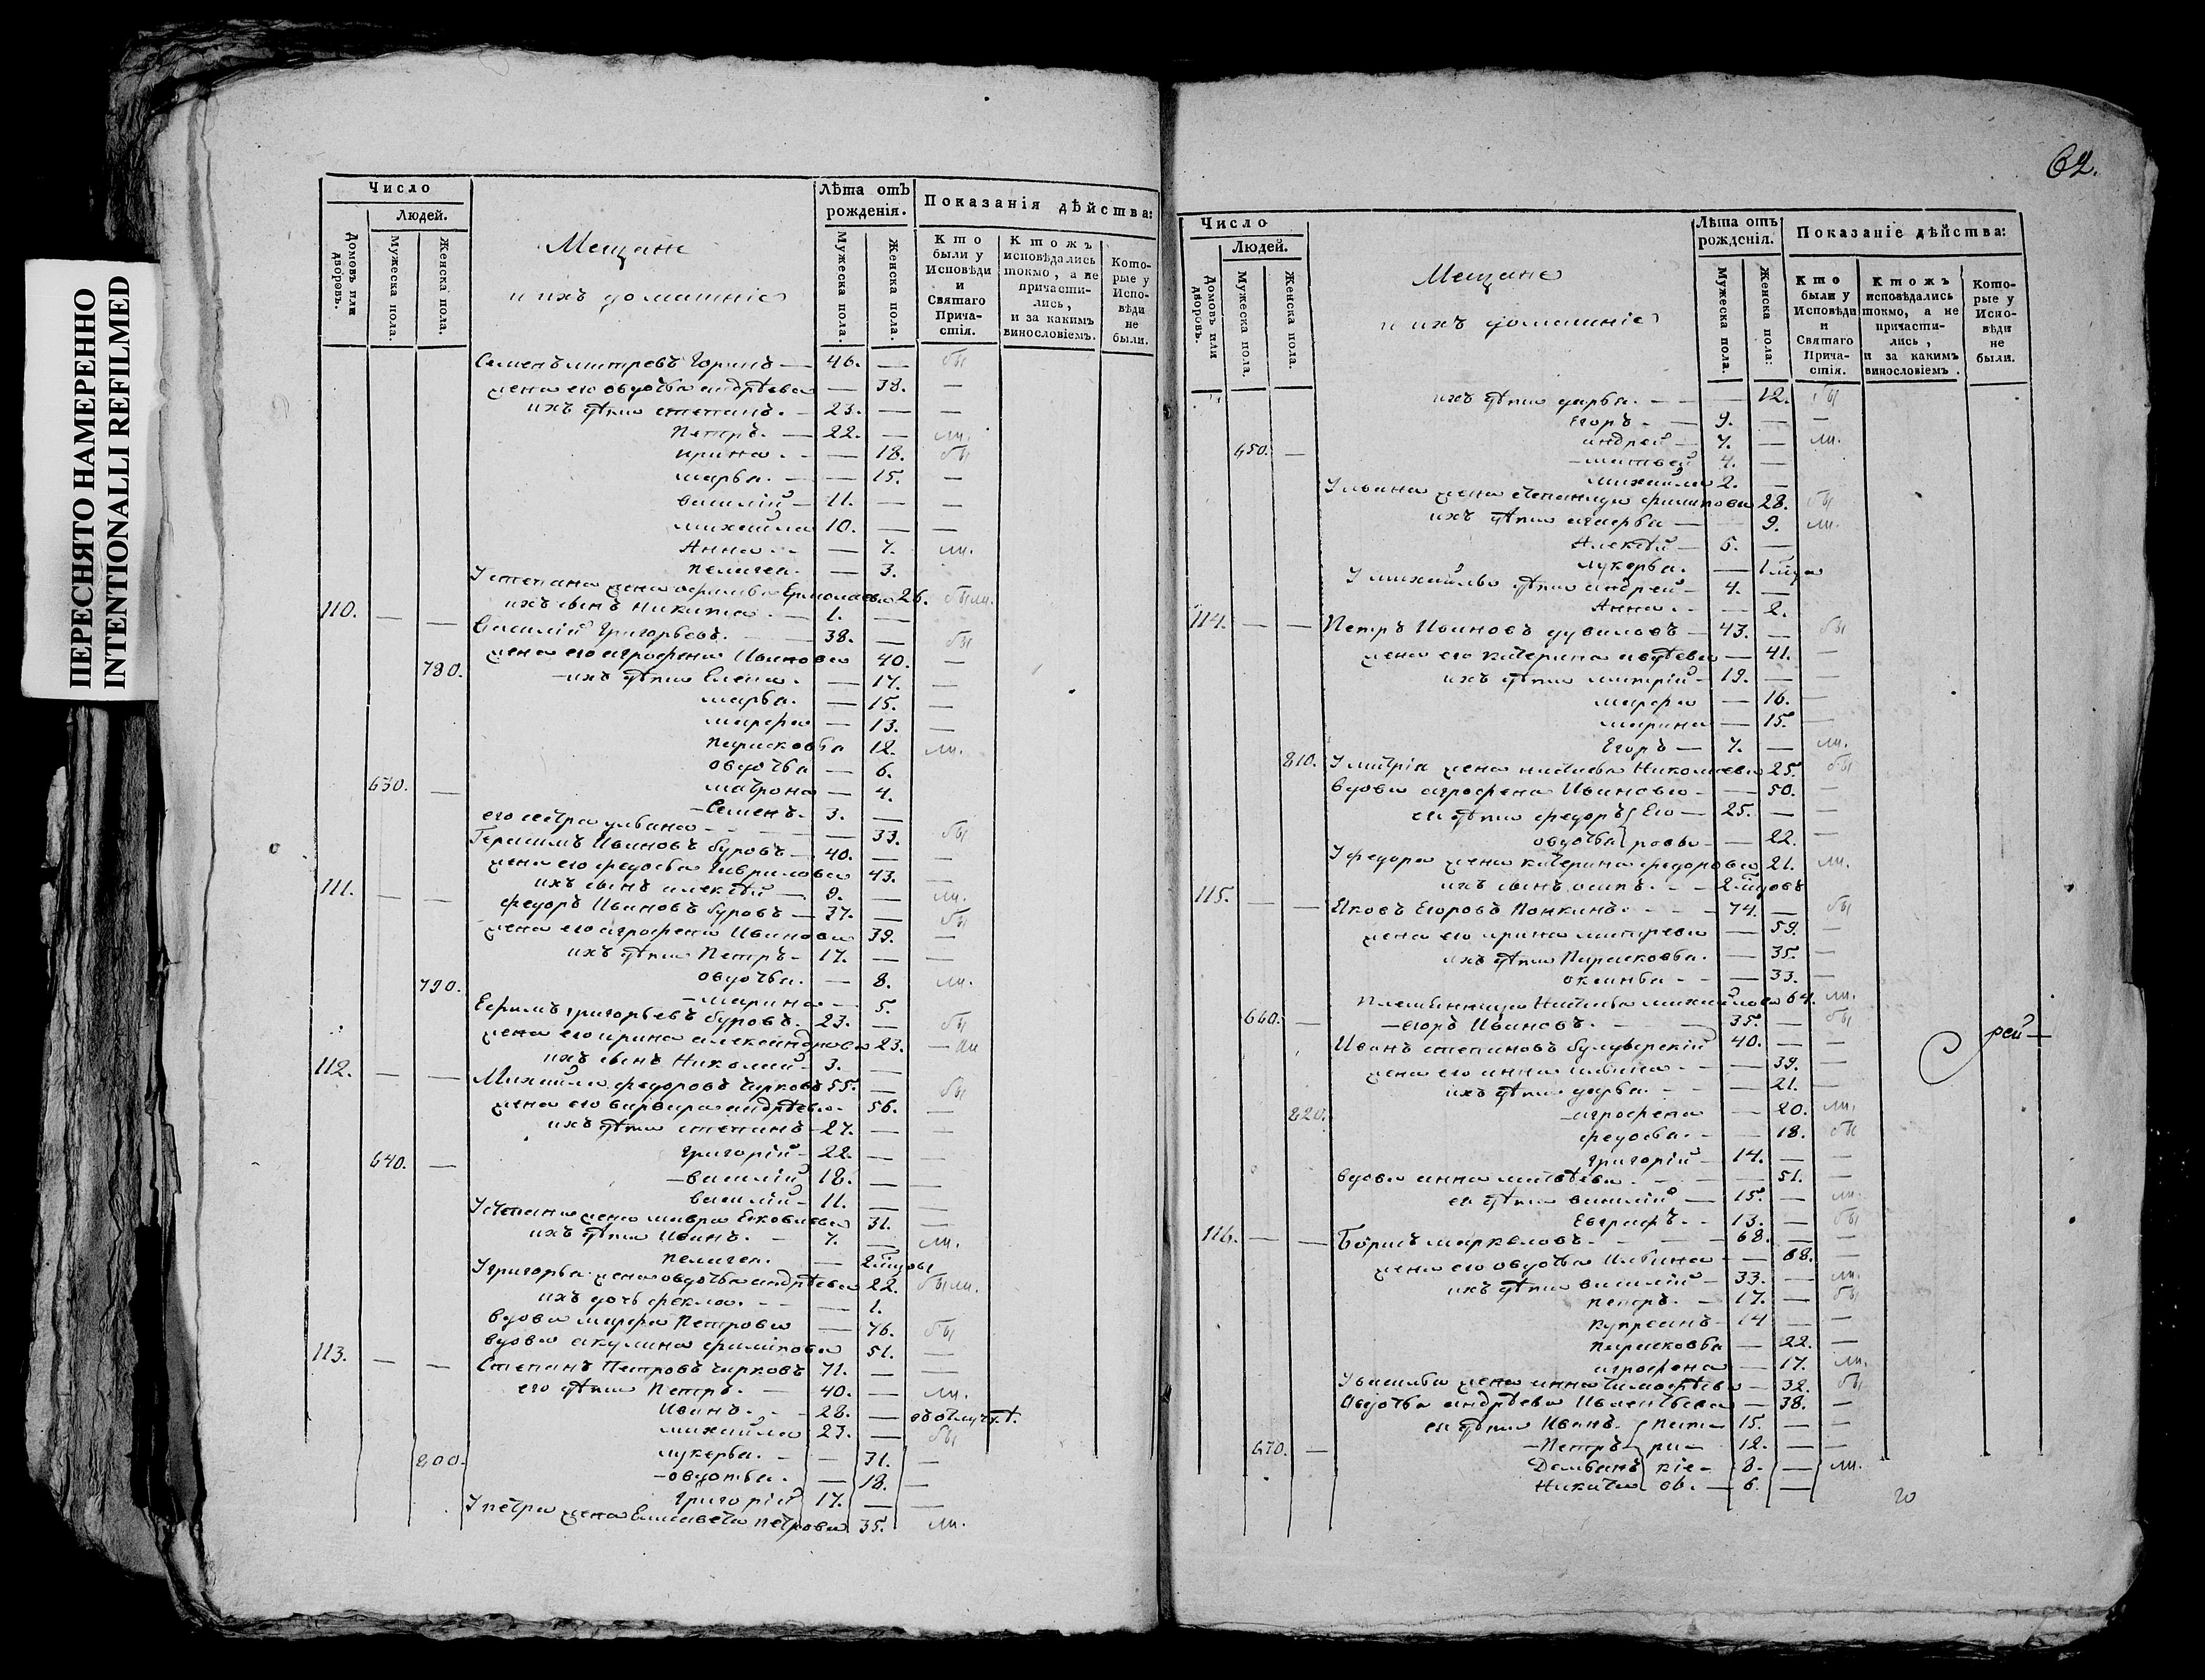 ПЕРЕСНЯТО НАМЕРЕННО
INTENTIONALLI REFILMED
Число
Людей.
Домовъ или дворовъ.
Мужеска пола.
Женска пола.
Мещане
и ихъ домашніе
Лѣта отъ рожденія.
Мужеска пола.
Женска пола.
Показанія дѣйства:
Кто были у Исповѣди и Святаго Прича-стія.
Ктожъ исповѣдались токмо, а не причасти-лись, и за какимъ винословіемъ.
Кото-рые у Испо-вѣди не были.
Семенъ митревъ — 46. — бы
жена его овдотья андрѣева — 38. —
ихъ дѣти степанъ. — 23. — —
Петръ. — 22. — ли.
ирина — 18. бы
марья. — 15. —
василій — 11. — —
михайла 10. — —
Анна — 7. ли.
пелагея. — 3.
У степана жена Ермолаева 26. были.
110. — — ихъ сынъ никита — 1. —
Василій Григорьевъ. — 38. — бы
жена его агрофена Иванова 40. —
780. ихъ дѣти Елена. — 17. —
марья. — 15. —
марфа — 13. —
парасковья 12. ли.
овдотья — 6.
630. — матрона — 4.
Семенъ. 3. —
его сестра ульяна — 33. бы
Герасимъ Ивановъ буровъ — 40. — —
жена его федосья Гаврилова 43. —
111. — — ихъ сынъ алексѣй — 9. — ли.
федоръ Ивановъ буровъ — 37. — бы
жена его агрофена Иванова 39. —
ихъ дѣти Петръ — 17. — —
овдотья. — 8. ли.
790. марина — 5.
Ефимъ григорьевъ буровъ. 23. — бы
жена его ирина александрова 23. — ли
112. — — ихъ сынъ Николай — 3. —
Михайла федоровъ чирковъ 55. — бы
жена его варвара андрѣева 56. —
ихъ дѣти степанъ — 27. — —
Григорій — 22. — —
640. — василій 18. — —
василій — 11. — —
У степана жена мавра Яковлева 31. —
ихъ дѣти Иванъ. — 7. — ли.
пелагея. — 2 годовъ
У григорья жена овдотья андрѣева 22. были.
ихъ дочь фекла. — 1.
вдова марфа Петрова — 76. бы
вдова акулина филипова 51. —
113. — — Степанъ Петровъ чирковъ 71. — —
его дѣти Петръ. — 40. — ли.
Иванъ. — 28. — въ отлучкѣ.
михайла 23. — бы
лукерья. — 31. —
800. овдотья. — 18. —
Григорій 17. — —
У петра жена Елисавета петрова 35. ли.
62.
Число
Людей.
Домовъ или дворовъ.
Мужеска пола.
Женска пола.
Мещане
и ихъ домашніе
Лѣта отъ рожденія.
Мужеска пола.
Женска пола:
Показаніе дѣйства:
Кто были у Исповѣди и Святаго Прича-стія.
Ктожъ исповѣдались токмо, а не причасти-лись, и за какимъ винословіемъ.
Кото-рые у Испо-вѣди не были.
ихъ дѣти дарья. — 12. бы
Егоръ — 9. — —
андрей — 7. — ли.
650. — матвей 4. —
михайла 2. —
У ивана жена степанида филипова 28. бы
ихъ дѣти — 9. ли.
Алексѣй — 6. —
лукерья. — 1 года
У михайлы дѣти андрей — 4. —
Анна — 2.
114. — — Петръ Ивановъ — 43. — бы
жена его катерина — 41. —
ихъ дѣти митрій — 19. — —
марфа — 16. —
марина — 15. —
Егоръ — 7. — ли.
810. У митрія жена наталья Николаева 25. бы
вдова агрофена Иванова — 50. —
ея дѣти федоръ 25. — —
овдотья — 22. —
У федора жена катерина федорова 21. ли.
115. — — ихъ сынъ осипъ. — 2 годовъ
Яковъ Егоровъ — 74. — бы
жена его ирина митрева — 59. —
ихъ дѣти Парасковья. — 35. —
оксинья — 33. —
Племянница Наталья михайлова 64. ли.
660. — егоръ Ивановъ. — 35. — бы
Иванъ степановъ 40. — —
жена его анна — 39. —
ихъ дѣти дарья. — 21. —
820. агрофена — 20. ли.
федосья. — 18. бы
Григорій — 14. — —
вдова анна матвѣева. — 51. —
ея дѣти василій — 15. — ли.
Евграфъ. — 13. — бы
116. — — Борисъ маркеловъ. — 68. — —
жена его овдотья — 68. —
ихъ дѣти василій — 33. — ли.
петръ. — 17. — бы
купреянъ — 14 — —
парасковья — 22. —
агрофена — 17. ли.
У василья жена анна тимофѣева — 32. бы
Овдотья андрѣева — 38. —
ея дѣти Иванъ. 15. — —
670. — Петръ 12. — —
Демьянъ 8. — ли.
Никита 6. —
рей —